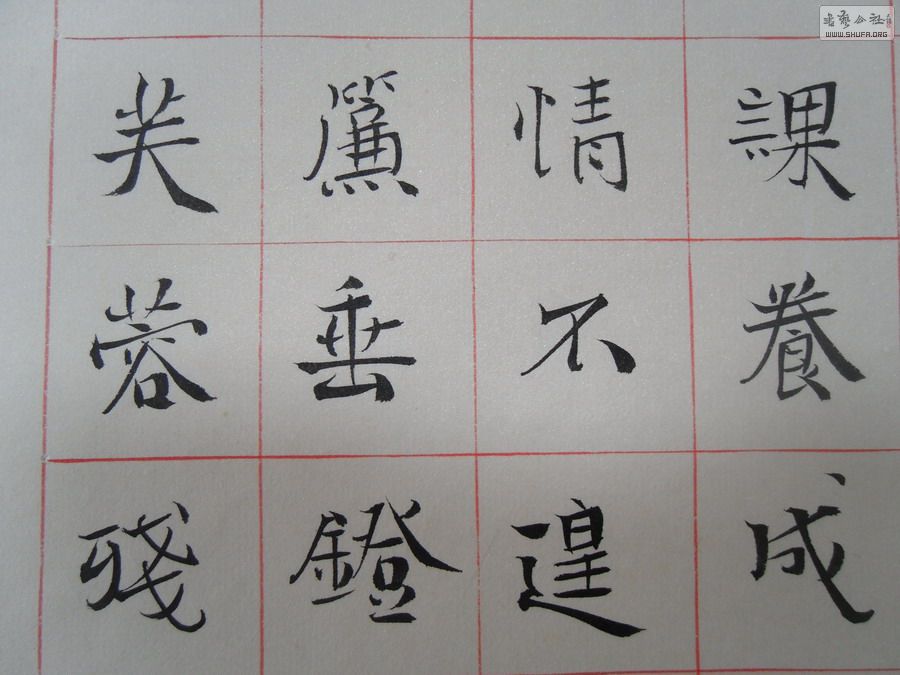 課養成
情不遑
簾垂鐙
芙蓉殘
書藝公社
WWW.SHUFA.ORG